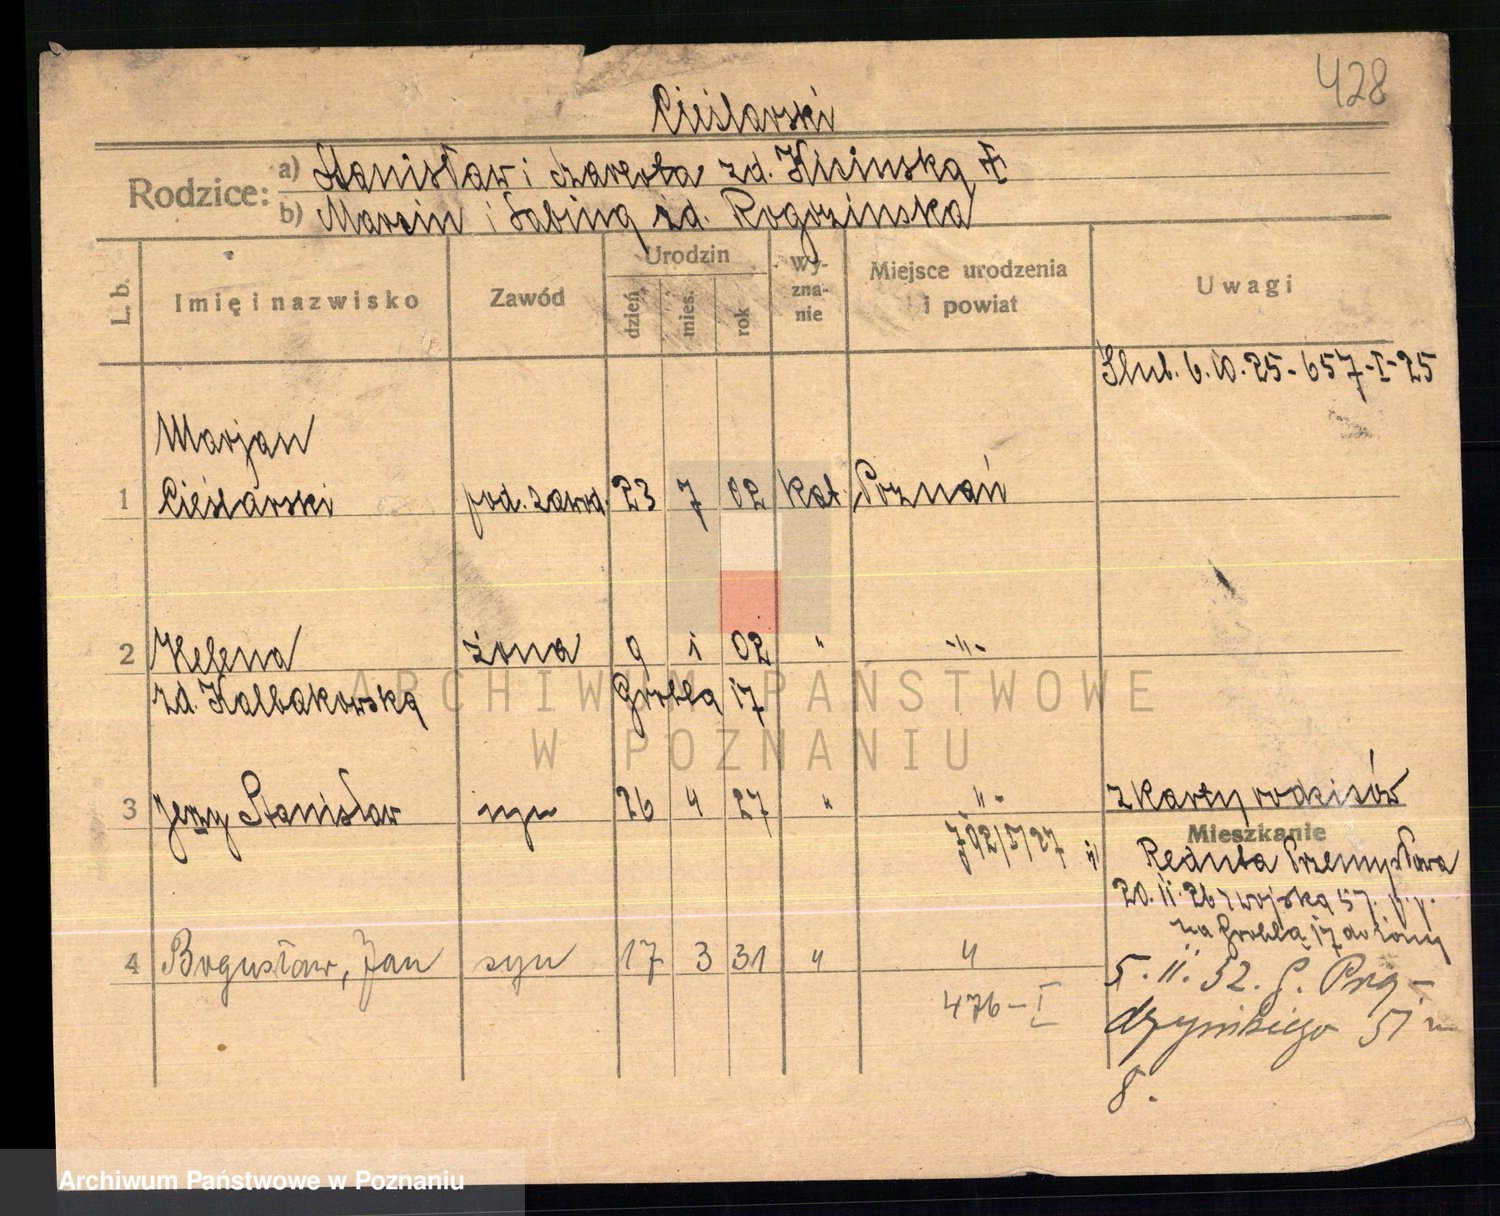 428
Cieślarski
Rodzice:
a) Stanisław i zd.
b) Marcin i Sabina zd. Rogozinska
L. b.
Imię i nazwisko
Zawód
Urodzin
dzień
mies.
rok
Wy-
zna-
nie
Miejsce urodzenia
i powiat
Uwagi
Ślub. 6.10.25-657-I-25
Marjan
1 Cieślarski pod. zawod. 23 7 02 kat. Poznań
2 Helena żona 9 1 02 " -"-
zd. Kalbakowska Grobla 17
3 Jerzy Stanisław syn 26 4 27 " "- z karty rodziców
792/5/27
Mieszkanie
Reduta Przemysława
20.11.26 z wojska 57. p.p.
na Grobla 17
4 Bogusław, Jan syn 17 3 31 " "
476-I
5.11.32.
51 m
8.
ARCHIWUM PAŃSTWOWE
W POZNANIU
Archiwum Państwowe w Poznaniu